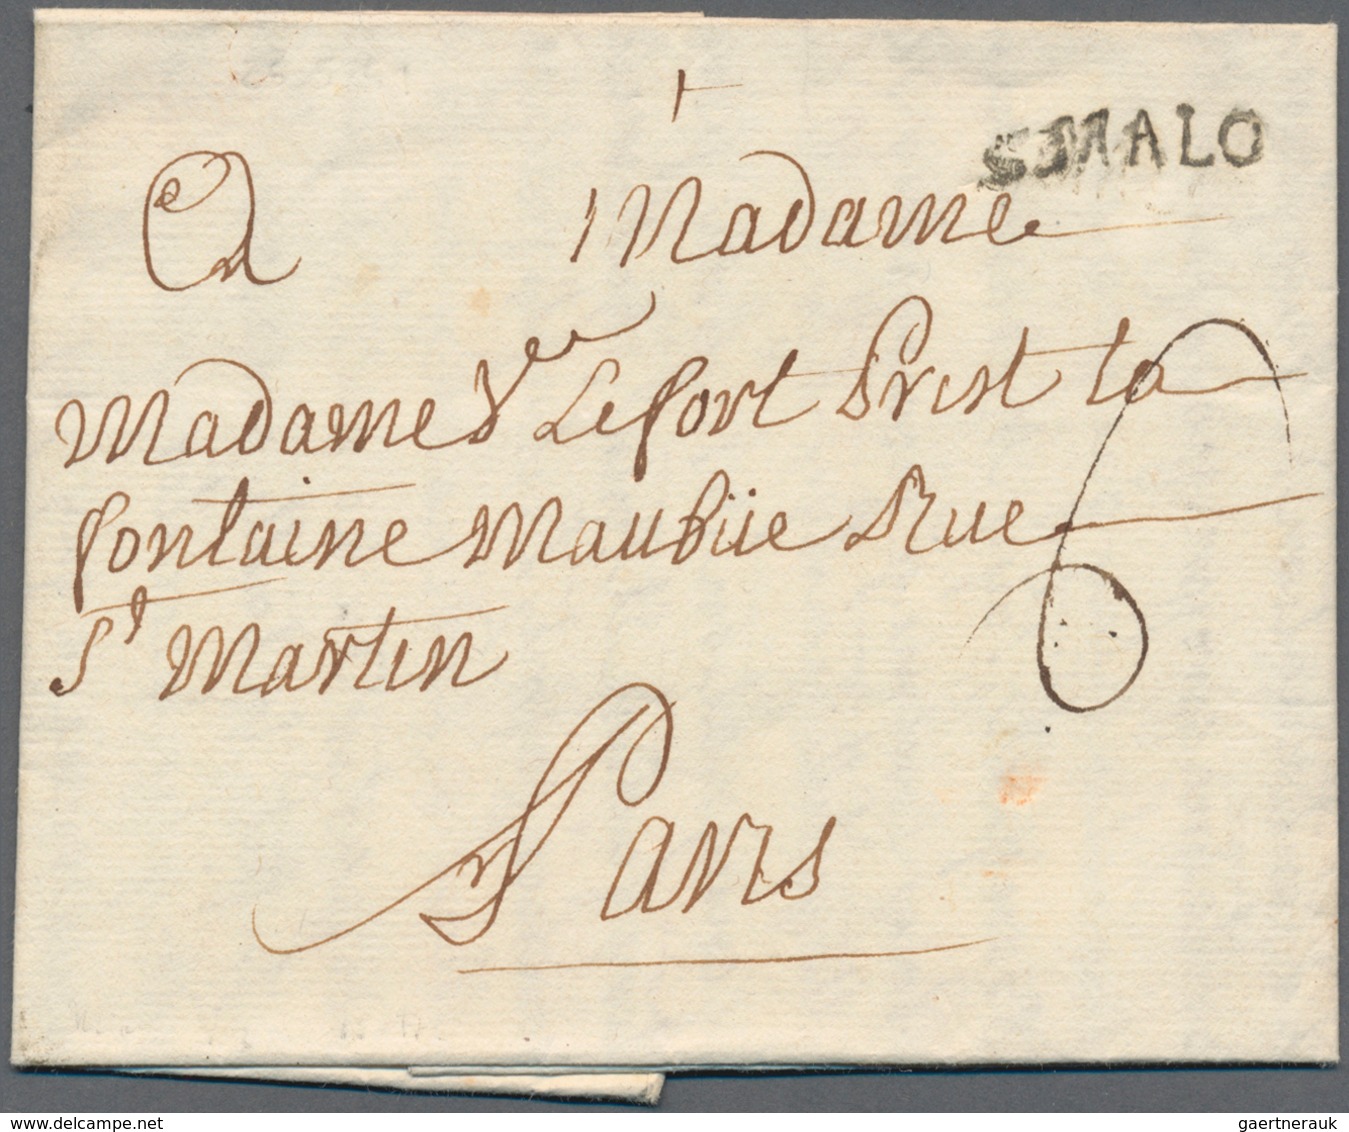 S. MALO
A Madame
Madame Vee Lefort Prest la
fontaine Maubüe Rue
St Martin
Paris
6
www.delcampe.net
gaertnerauk